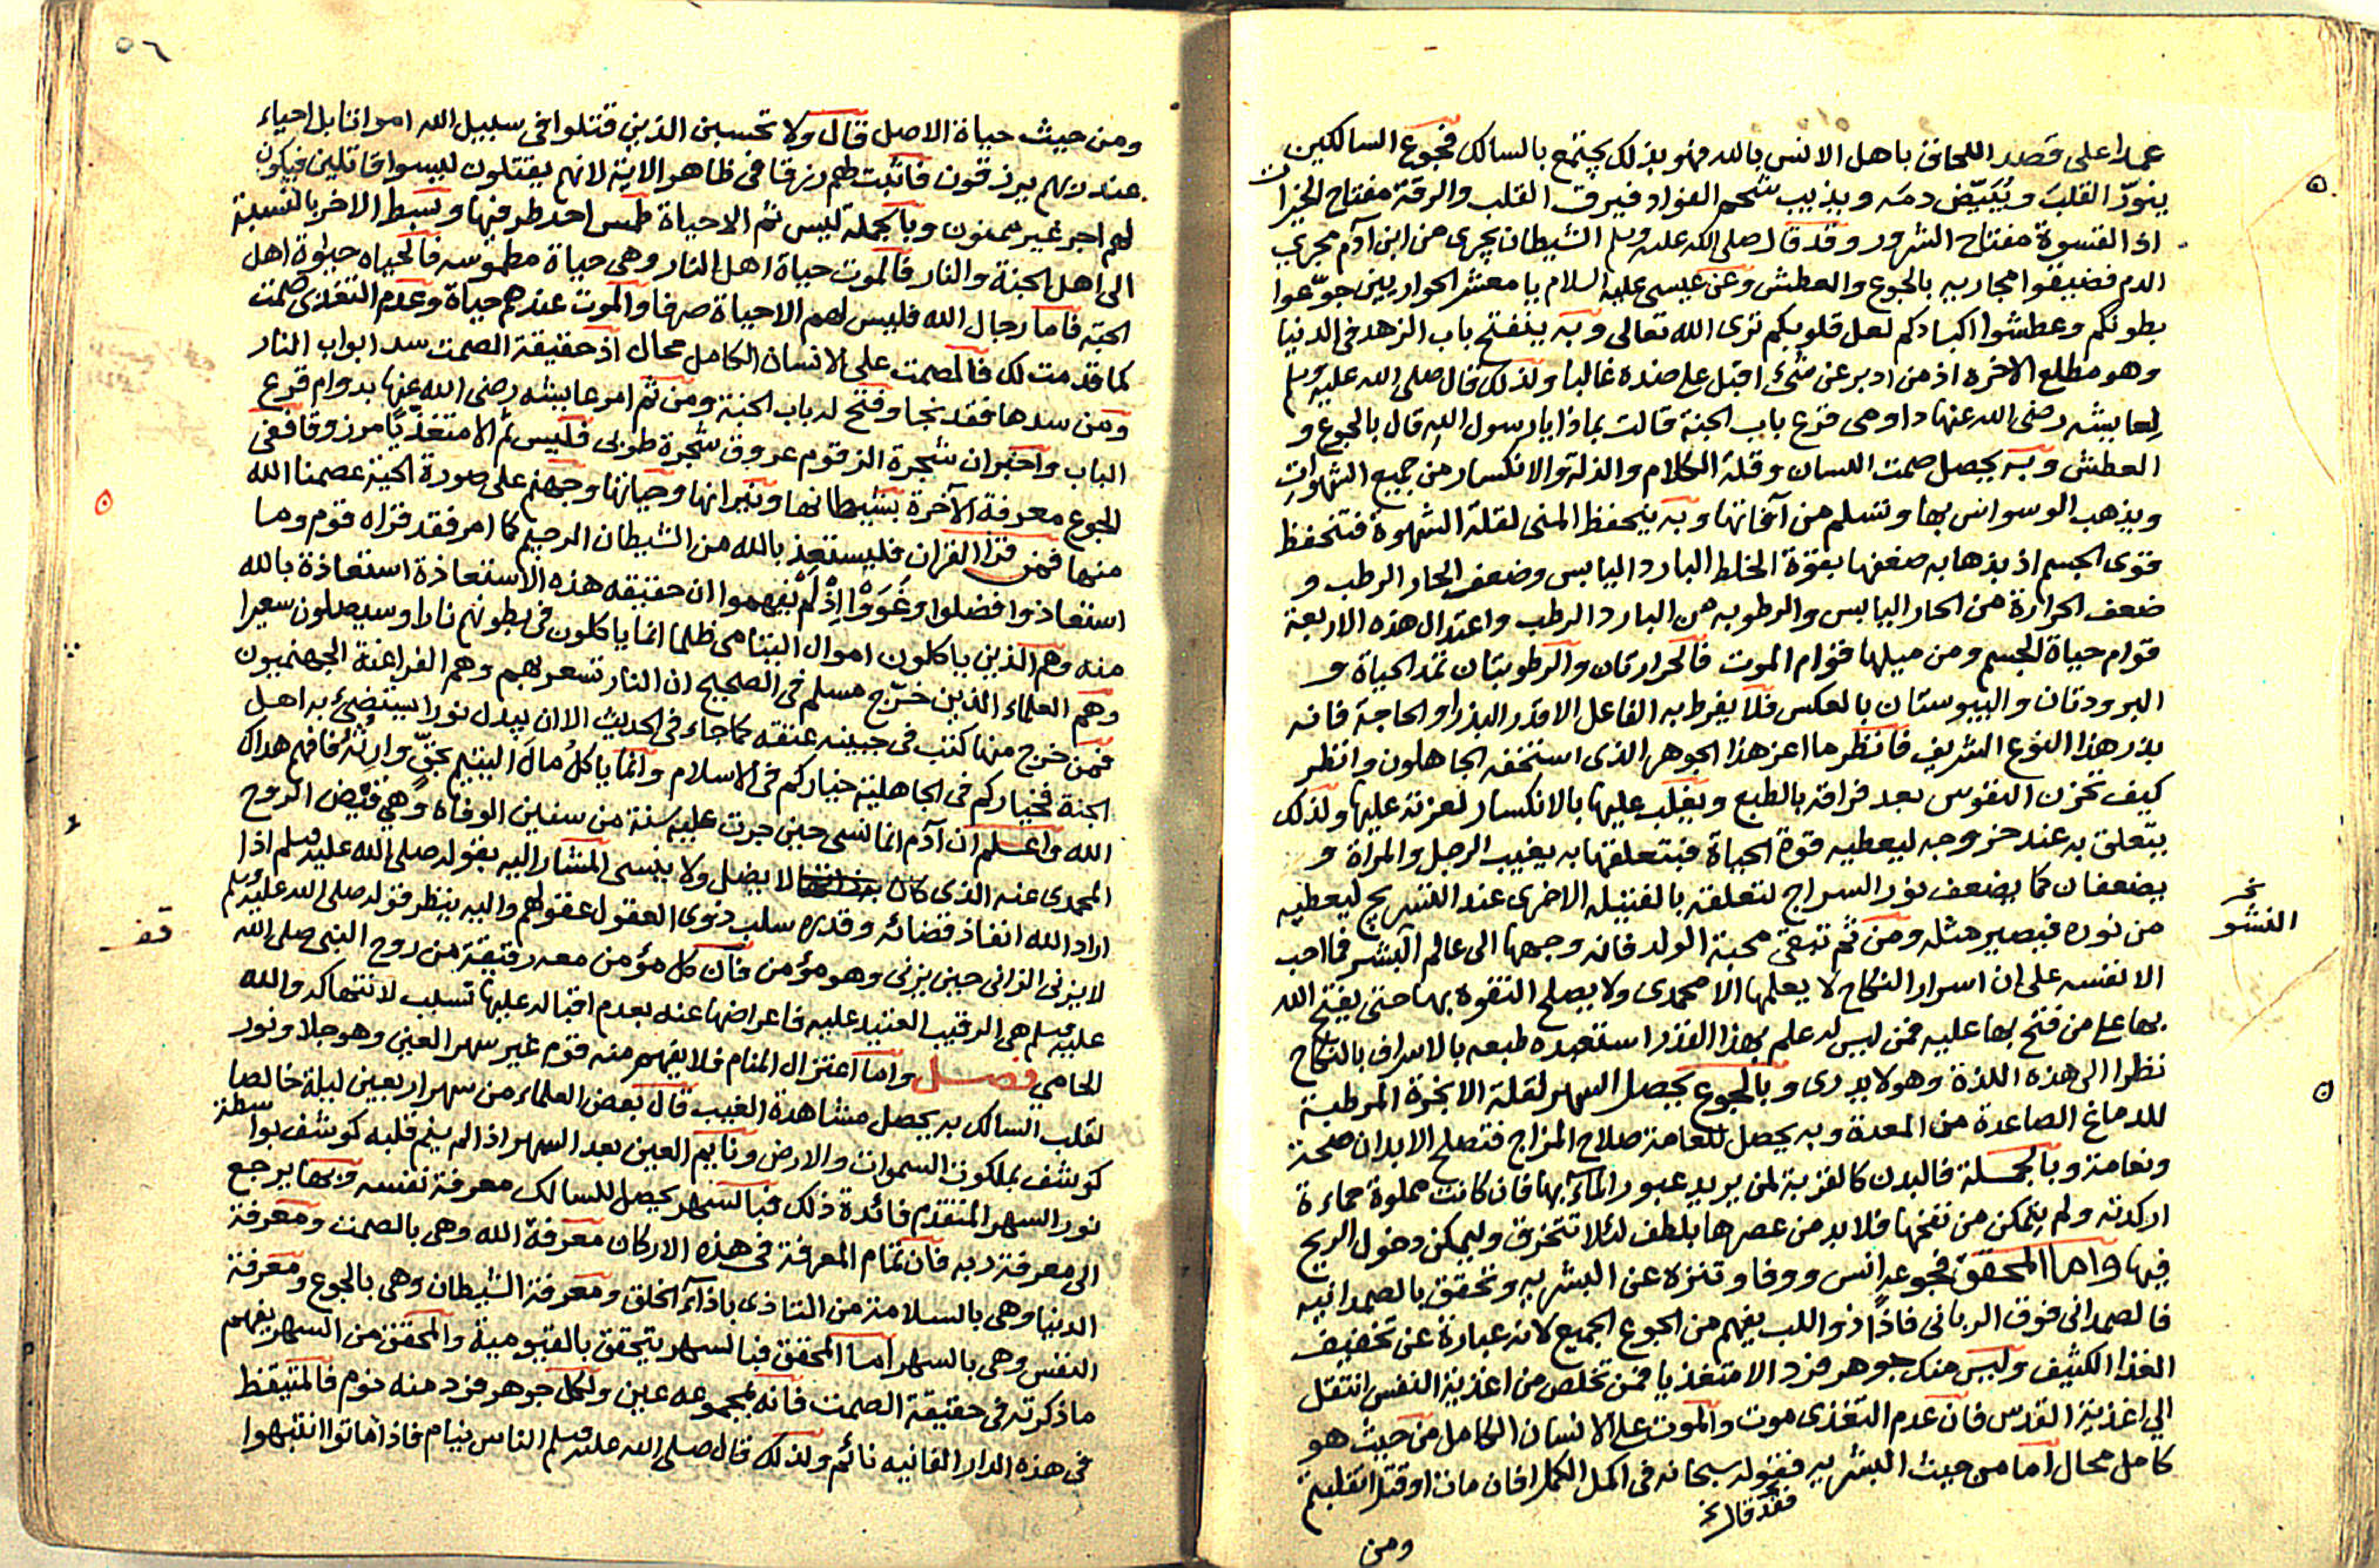 عمدا على قصد اللحاق باهل الانس بالله فهو بذلك يجتمع بالسالك فجوع السالكين
ينوّر القلبَ ويُبَيّض دمَه ويذيب شحم الفؤاد فيرق القلب والرقة مفتاح الخيرات
اذ القسوة مفتاح الشرور وقد قال صلى الله عليه وسلم الشيطان يجرى من ابن آدم مجرى
الدم فضيقوا مجاريه بالجوع والعطش وعن عيسى عليه السلام يا معشر الحواريين جوّعوا
بطونكم وعطشوا اكبادكم لعل قلوبكم ترى الله تعالى وبه ينفتح باب الزهد فى الدنيا
وهو مطلع الاخرة اذ من ادبر عن شئ اقبل على ضده غالبا ولذلك قال صلى الله عليه وسلم
لعايشه رضى الله عنها داومى قرع باب الجنة قالت بماذا يا رسول الله قال بالجوع و
العطش وبه يحصل صمت اللسان وقلة الكلام والذلة والانكسار من جميع الشهوات
ويذهب الوسواس بها وتسلم من آفاتها وبه يتحفظ المنى لقلة الشهوة فتتحفظ
قوى الجسم اذ بذهابه ضعفها بقوة الخلط البارد اليابس وضعف الحار الرطب و
ضعف الحرارة من الحار اليابس والرطوبه من البارد الرطب واعتدال هذه الاربعة
قوام حياة الجسم ومن ميلها قوام الموت فالحرارتان والرطوبتان تمد الحياة و
البرودتان واليبوستان بالعكس فلا يفرط به الفاعل الا قدر البذر او الحاجة فانه
بذر هذا النوع الشريف فانظر ما اعز هذا الجوهر الذى استخفه الجاهلون وانظر
كيف تحزن النفوس بعد فراقه بالطبع ويغلب عليها بالانكسار لعزته عليها ولذلك
يتعلق به عند خروجه ليعطيه قوة الحياة فبتعلقها به يغيب الرجل والمراة و
يضعفان كما يضعف نور السراج لتعلقه بالفتيله الاخرى عند التسريج ليعطيه
من نوره فيصير مثله ومن ثم تبقى محبة الولد فانه وجهها الى عالم البشر فما احب
نخ النشو
الا نفسه على ان اسرار النكاح لا يعلمها الا محمدى ولا يصلح التفوه بها حتى يفتح الله
بها على من فتح بها عليه فمن ليس له علم بهذا القدر استعبده طبعه بالاسراف بالنكاح
نظرا الى هذه اللذة وهو لا يدرى وبالجوع يحصل السهر لقلة الابخرة المرطبة
للدماغ الصاعدة من المعدة وبه يحصل للعامة صلاح المزاج فتصلح الابدان صحة
ونعامة وبالجملة فالبدن كالقربة لمن يريد عبور الماء بها فان كانت مملوة حماءة
اركدته ولم يتمكن من نفخها فلا بد من عصرها بلطف لئلا تتخرق وليمكن دخول الريح
فيها واما المحقق فجوعه انس ووفا وتنزه عن البشريه وتحقق بالصمدانيه
فالصمدانى فوق الربانى فاذا ذو اللب يفهم من الجوع الجميع لانه عبارة عن تخفيف
الغذا الكثيف وليس منك جوهر فرد الا متغذيا فمن تخلص من اغذية النفس انتقل
الى اغذية القدس فان عدم التغذى موت والموت على الانسان الكامل من حيث هو
كامل محال اما من حيث البشريه فقوله سبحانه فى اكمل الكمل افان مات او قتل انقلبتم
ومن
٥٦
ومن حيث حياة الاصل قال ولا تحسبن الذين قتلوا فى سبيل الله امواتا بل احياء
عند ربهم يرزقون فاثبت لهم رزقا فى ظاهر الاية لانهم يقتلون ليسوا قاتلين فيكون
لهم اجر غير ممنون وبالجملة ليس ثم الا حياة طمس احد طرفيها وبسط الاخر بالنسبة
الى اهل الجنة والنار فالموت حياة اهل النار وهى حياة مطموسه فالحياه حيوة اهل
الجنة فاما رجال الله فليس لهم الا حياة صرفا والموت عندهم حياة وعدم التغذى صمت
كما قدمت لك فالصمت على الانسان الكامل محال اذ حقيقة الصمت سد ابواب النار
ومن سدها فقد نجا وفتح له باب الجنة ومن ثم امر عايشه رضى الله عنها بدوام قرع
الباب واخبر ان شجرة الزقوم عروق شجرة طوبى فليس ثم الا متغذيا مرزوقا ففى
الجوع معرفة الآخرة بشيطانها ونيرانها وحياتها وجهنم على صورة الجنة عصمنا الله
منها فمن قرا القران فليستعذ بالله من الشيطان الرجيم كما امر فقد قراه قوم وما
استعاذوا فضلوا وغووا اذ لم يفهموا ان حقيقه هذه الاستعاذة استعاذة بالله
منه وهم الذين ياكلون اموال اليتامى ظلما انما ياكلون فى بطونهم نارا وسيصلون سعيرا
وهم العلماء الذين خرّج مسلم فى الصحيح ان النار تسعر بهم وهم الفراعنة الجهنميون
فمن خرج منها كتب فى جبينه عتقه كما جاء فى الحديث الا ان يبدل نورا يستضئ به اهل
الجنة فخياركم فى الجاهلية خياركم فى الاسلام وانما ياكل مال اليتيم بحقٍّ وارثه فافهم هداك
الله واعلم ان آدم انما نسى حين جرت عليه سنة من سفين الوفاه وهى قبض الروح
المحمدى عنه الذى كان لا يضل ولا ينسى المشار اليه بقوله صلى الله عليه وسلم اذا
اراد الله انفاذ قضائه وقدره سلب ذوى العقول عقولهم واليه ينظر قوله صلى الله عليه وسلم
لا يزنى الزانى حين يزنى وهو مؤمن فان كل مؤمن معه رقيقة من روح النبى صلى الله
قف
عليه وسلم هى الرقيب العتيد عليه فاعراضها عنه بعدم اقباله عليها تسلب لانتهاكه والله
الحامي فصل واما اعتزال المنام فلا يفهم منه قوم غير سهر العين وهو جلا ونور
لقلب السالك به يحصل مشاهدة الغيب قال بعض العلماء من سهر اربعين ليلة خالصا
كوشف بملكوت السموات والارض ونايم العين بعد السهر اذا لم ينم قلبه كوشف بواسطة
نور السهر المتقدم فائدة ذلك فبالسهر يحصل للسالك معرفة نفسه وبها يرجع
الى معرفة ربه فان تمام المعرفة فى هذه الاركان معرفة الله وهى بالصمت ومعرفة
الدنيا وهى بالسلامة من التاذى باذآء الخلق ومعرفة الشيطان وهى بالجوع ومعرفة
النفس وهى بالسهر اما المحقق فبالسهر يتحقق بالقيوميه والمحقق من السهر يفهم
ما ذكرته فى حقيقة الصمت فانه بمجموعه عين ولكل جوهر فرد منه نوم فالمتيقظ
فى هذه الدار الفانيه نائم ولذلك قال صلى الله عليه وسلم الناس نيام فاذا ماتوا انتبهوا